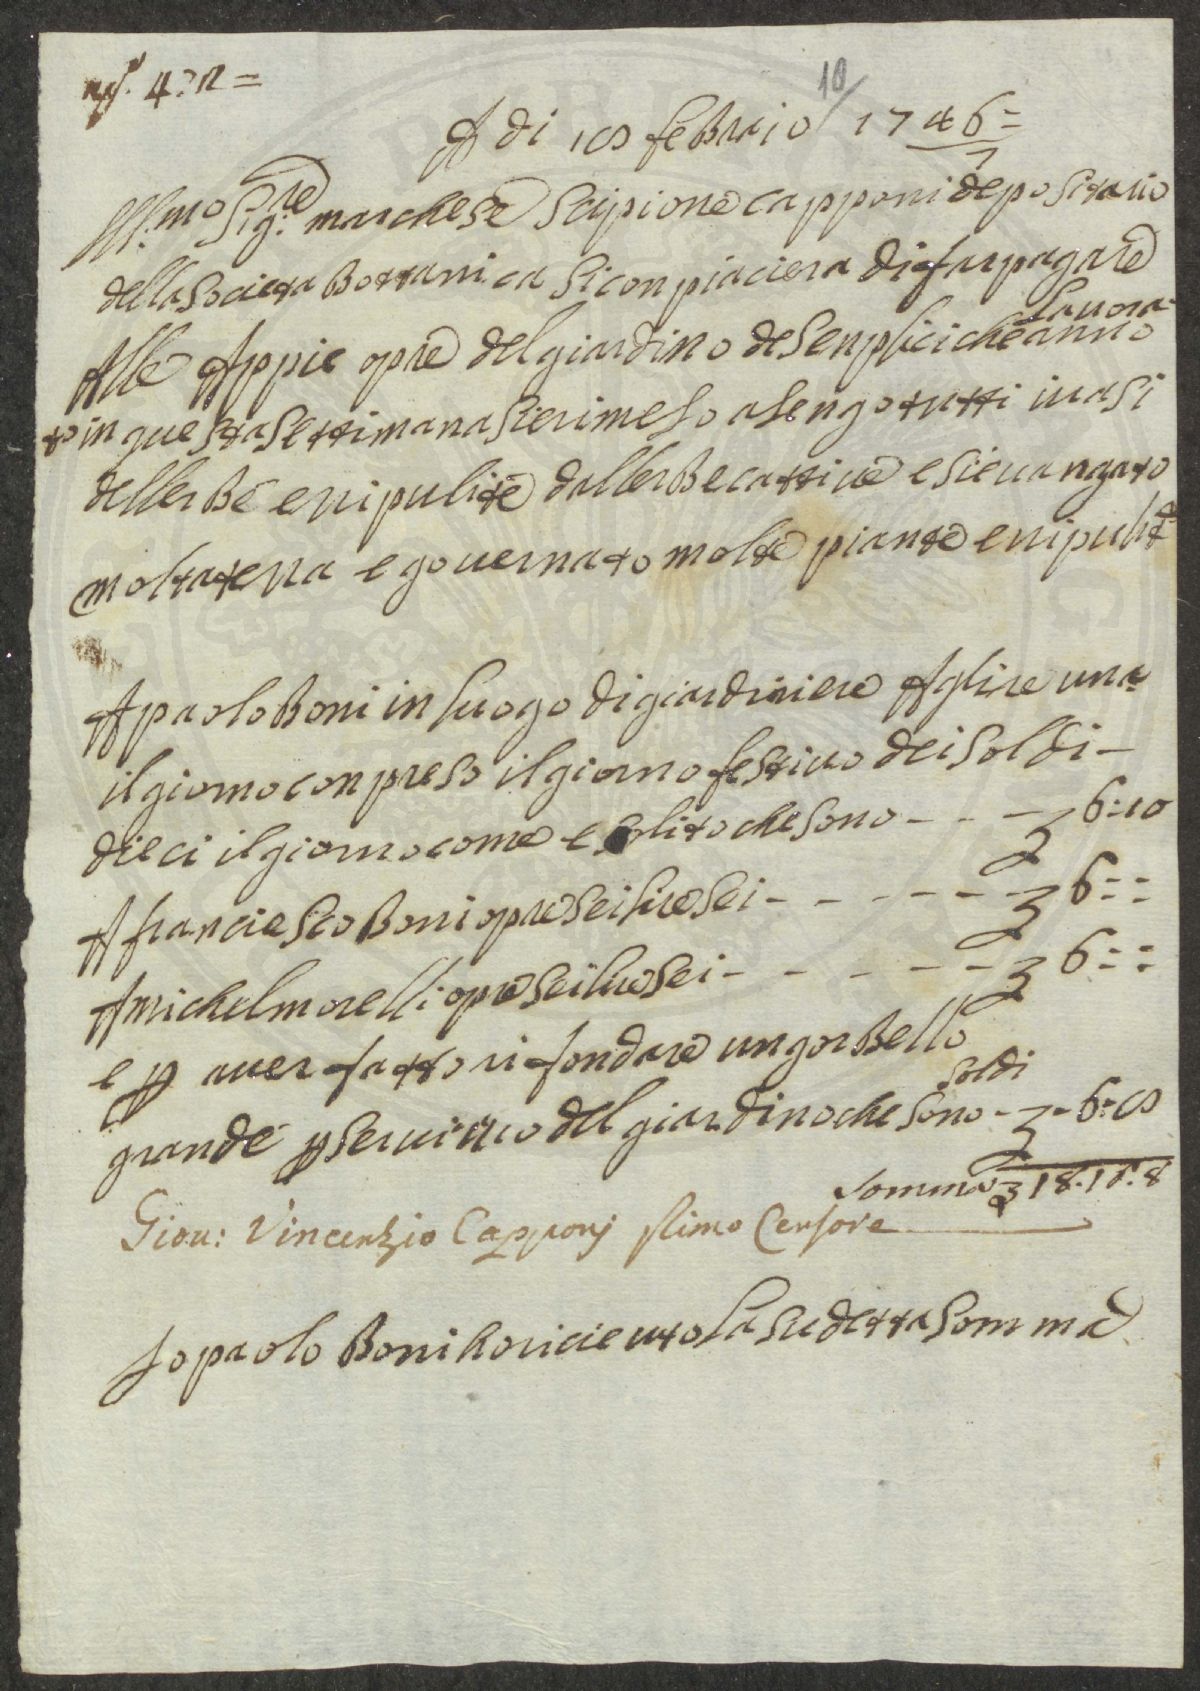 4: 12 =
10
A di 10 feBraio 1746=
7
Ill:mo Sig:re marchese Scipione capponi depositario
della Societa Bottanica Si conpiaciera di far pagare
Alle Appie opre del giardino de Senplici che anno
lauora
to in questa Settimana Sie rimeso a Sengo tutti i uasi
dellerBe e ripulite dallerBe cattiue e Sie uangato
molta terra e gouernato molte piante e ripulite
A paolo Boni in luogo di giardiniere A glire una
il giorno conpreso il giorno festiuo dei Soldi -
dieci il giorno come e Solito che sono - - - 3 6:10
A franciesco Boni opre Sei lire Sei - - - - - - 3 6: = :
A michel morelli opre Sei lire Sei - - - - - - 3 6: = :
e p auer fatto rifondare un gorBello
grande p Seruitio del giardino che Sono soldi - 3 - 6: 8
Somma 3 18. 16: 8
Giou: Vincenzio Capponj primo Censore
Jo paolo Boni ho riceuto la Sudetta Somma